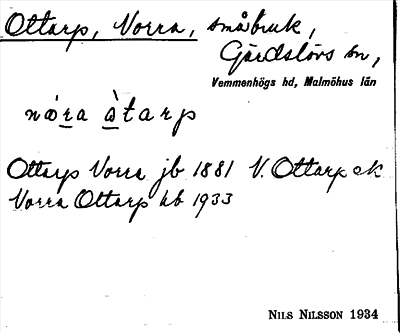 Ottarp, Norra, småbruk,
Gärdslövs sn,
Vemmenhögs hd, Malmöhus län
nɷ́ra ὰtarp
Ottarp Norra jb 1881 N. Ottarp ek
Norra Ottarp hb 1933
NILS NILSSON 1934